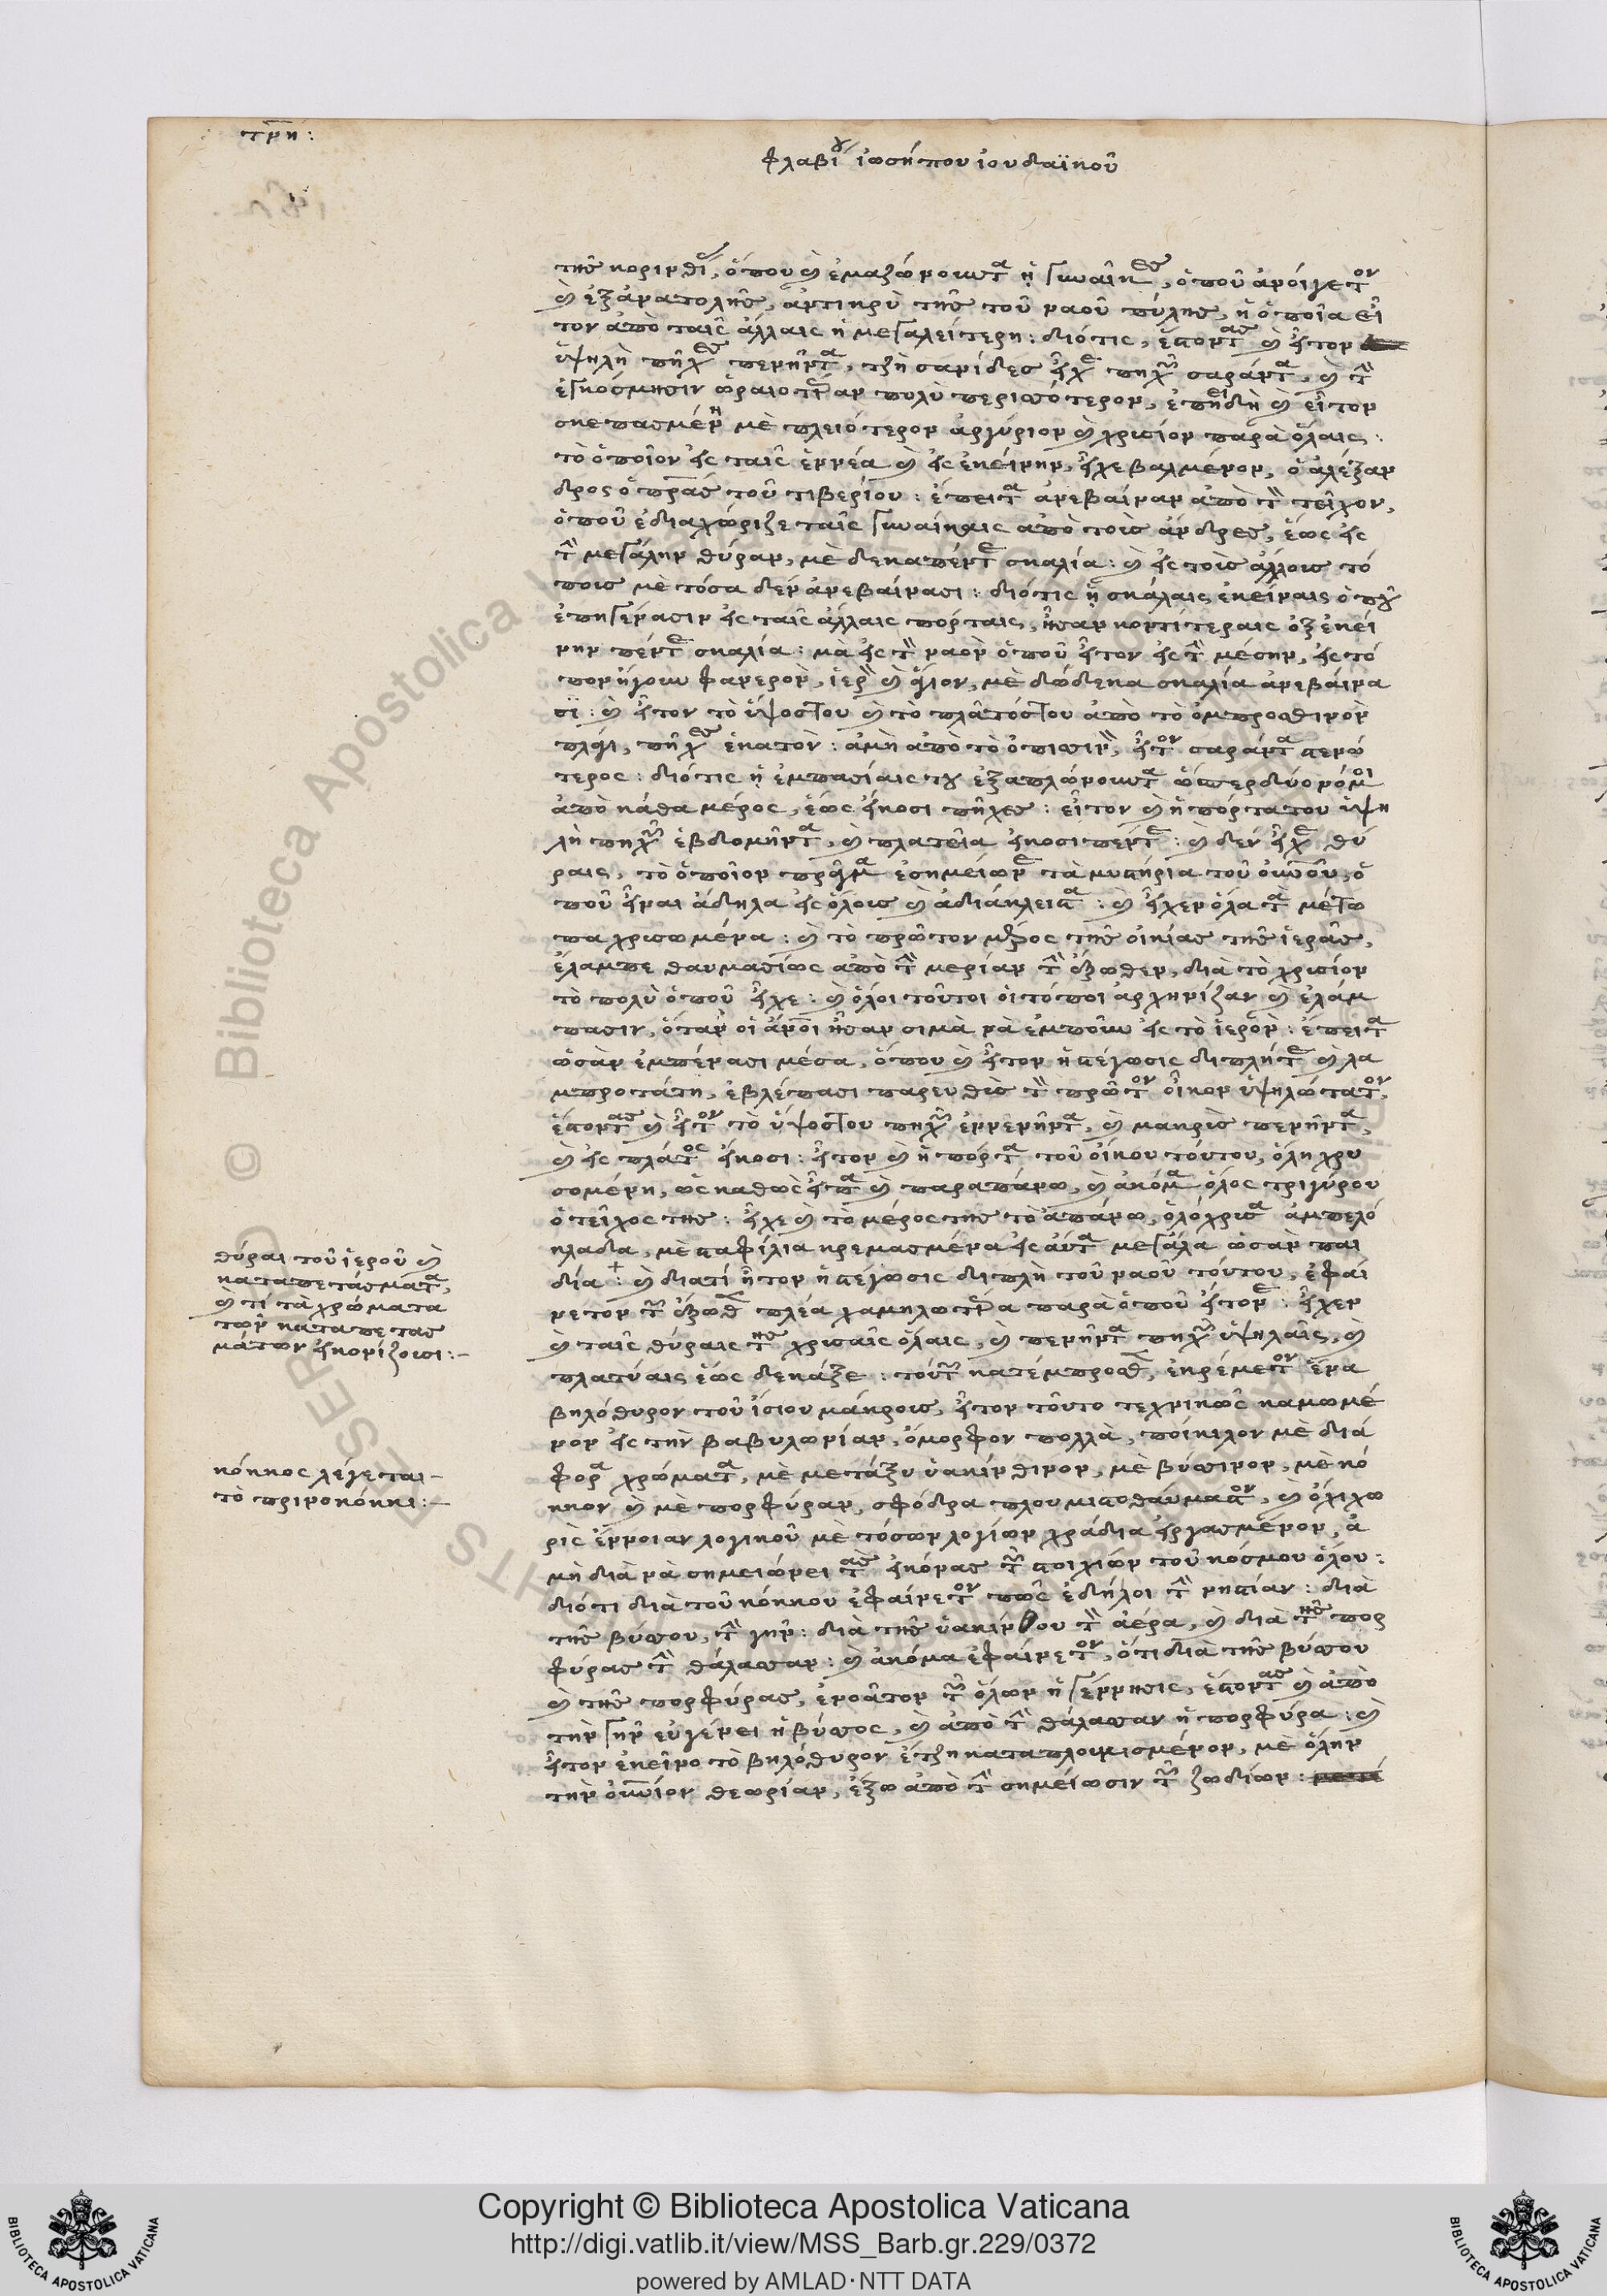 τμη:
φλαβίου ἰωσήπου ἰουδαϊκοῦ
τῆς κορινθί, ὅπου καὶ ἐμαζώνουντα ἡ γυναῖκες, ὁποῦ ἀνοίγετον
καὶ ἐξανατολῆς, ἀντικρὺ τῆς τοῦ ναοῦ πύλης, ἡ ὁποῖα εἶ
τον ἀπὸ ταῖς ἄλλαις ἡ μεγαλείτερη: διότις, ἔστοντας καὶ ἦτον
ὑψηλὴ πῆχες πενῆντα, τζὴ σανίδες εἶχε πηχῶν σαράντα, καὶ τὴν
ἐγκόσμησιν ὡραιοτέραν πολὺ περισσότερον, ἐπειδὴ καὶ εἶτον
σκεπασμένη μὲ πλειότερον ἀργύριον καὶ χρυσίον παρὰ ὅλαις:
τὸ ὁποῖον εἰς ταῖς ἐννέα καὶ εἰς ἐκείνην, εἶχε βαλμένον, ὁ ἀλέξαν
δρος ὁ πατὴρ τοῦ τιβερίου: ἔπειτα ἀνεβαίναν ἀπὸ τὸν τεῖχον,
ὁποῦ ἐδιαχώριζε ταῖς γυναίκαις ἀπὸ τοὺς ἄνδρες, ἕως εἰς
τὴν μεγάλην θύραν, μὲ δεκαπέντε σκαλία: καὶ εἰς τοὺς ἄλλους τό
πους μὲ τόσα δὲν ἀνεβαίνασι: διότις ἡ σκάλαις ἐκείναις ὁποῦ
ἐπηγένασιν εἰς ταῖς ἄλλαις πόρταις, ἦσαν κοντίτεραις ὀξ ἐκεί
νην πέντε σκαλία: μα εἰς τὸν ναὸν ὁποῦ ἦτον εἰς τὴν μέσην, εἰς τό
πον ἤγουν φανερὸν, ἱερὸν καὶ ἅγιον, μὲ δώδεκα σκαλία ἀνεβαίνα
σι: καὶ ἦτον τὸ ὕψοςτου καὶ τὸ πλάτοςτου ἀπὸ τὸ ὀμπροσθινὸν
πλάγι, πῆχες ἑκατὸν: ἀμὴ ἀπὸ τὸ ὀπισινὸν, ἦτον σαράντα στενώ
τερος: διότις ἡ ἐμπασίαις του ἐξαπλώνουντα ὥσπερ δύο νόμοι
ἀπὸ κάθα μέρος, ἕως εἴκοσι πῆχες: εἶτον καὶ ἡ πόρτατου ὑψη
λὴ πηχῶν ἑβδομῆντα, καὶ πλατεῖα εἴκοσι πέντε: καὶ δὲν εἶχε θύ
ραις, τὸ ὁποῖον πρᾶγμα ἐσημείωνε τὰ μυστήρια τοῦ οὐρανοῦ, ὁ
ποῦ εἶναι ἄδηλα εἰς ὅλους καὶ ἀδιάκλειστα: καὶ εἶχεν ὅλα τὰ μέτω
πα χρυσωμένα: καὶ τὸ πρῶτον μέρος τῆς οἰκίας τῆς ἱερᾶς,
ἔλαμπε θαυμασίως ἀπὸ τὴν μερίαν τὴν ὄξωθεν, διὰ τὸ χρυσίον
τὸ πολὺ ὁποῦ εἶχε: καὶ ὅλοι τοῦτοι οἱ τόποι ἀρχηνίζαν καὶ ἐλάμ
πασιν, ὅταν οἱ ἄνθρωποι ἦσαν σιμὰ νὰ ἐμποῦν εἰς τὸ ἱερὸν: ἔπειτα
ὡσὰν ἐμπένασι μέσα, ὅπου καὶ ἦτον ἡ στέγωσις διπλή τε καὶ λα
μπροτάτη, ἐβλέπασι παρευθὺς τὸν πρῶτον οἶκον ὑψηλώτατον,
ἔστοντας καὶ ἦτον τὸ ὕψοςτου πηχῶν ἐννενῆντα, καὶ μακρὺς πενῆντα,
καὶ εἰς πλάτος εἴκοσι: ἦτον καὶ ἡ πόρτα τοῦ οἴκου τούτου, ὅλη χρυ
σομένη, ὡς καθὼς εἶπα καὶ παραπάνω, καὶ ἀκόμα ὅλος τριγύρου
ὁ τεῖχος της: εἶχε καὶ τὸ μέρος της τὸ ἀπάνω, ὁλόχρυσα ἀμπελό
κλαδα, μὲ σταφίλια κρεμασμένα εἰς αὐτὰ μεγάλα ὡσὰν παι
δία: καὶ διατί ἦτον ἡ στέγωσις διπλὴ τοῦ ναοῦ τούτου, ἐφαί
νετον τῶν ὄξωθεν πλέα χαμηλωτέρα παρὰ ὁποῦ ἦτονε: εἶχεν
καὶ ταῖς θύραις της χρυσαῖς ὅλαις, καὶ πενῆντα πηχῶν ὑψηλαῖς, καὶ
πλατύαις ἕως δεκάξε: τούτων κατέμπροσθεν, ἐκρέμετον ἕνα
βηλόθυρον τοῦ ἴσιου μάκρους, ἦτον τοῦτο τεχνικῶς καμωμέ
νον εἰς τὴν βαβυλωνίαν, ὄμορφον πολλὰ, ποίκιλον μὲ διά
φορα χρώματα, μὲ μετάξυ ὑακίνθινον, μὲ βύσσινον, μὲ κό
κκον καὶ μὲ πορφύραν, σφόδρα πλουμιστοθαύμαστον, καὶ ὄχι χω
ρὶς ἔννοιαν λογικοῦ μὲ τόσων λογίων χράδια ἐργασμένον, ἀ
μὴ διὰ νὰ σημειώνει τὰς εἰκόνας τῶν στοιχιῶν τοῦ κόσμου ὅλου:
διότι διὰ τοῦ κόκκου ἐφαίνετον πῶς ἐδήλοι τὴν νηστίαν: διὰ
τῆς βύσσου, τὴν γῆν: διὰ τῆς ὑακίνθου τὸν ἀέρα, καὶ διὰ τῆς πορ
φύρας τὴν θάλασσαν: καὶ ἀκόμα ἐφαίνετον, ὅτι διὰ τῆς βύσσου
καὶ τῆς πορφύρας, ἐνοᾶτον τῶν ὅλων ἡ γέννησις, ἔστοντας καὶ ἀπὸ
τὴν γῆν εὐγένει ἡ βύσσος, καὶ ἀπὸ τὴν θάλασσαν ἡ πορφύρα: καὶ
ἦτον ἐκεῖνο τὸ βηλόθυρον ἔτζη καταπλουμισμένον, μὲ ὅλην
τὴν οὐράνιον θεωρίαν, ἔξω ἀπὸ τὴν σημείωσιν τῶν ζωδίων:
θύραι τοῦ ἱεροῦ καὶ
καταπετάσματα,
καὶ τί τὰ χρώματα
τῶν καταπετασ
μάτων εἰκονίζουσι:-
κόκκος λέγεται-
τὸ πρινοκόκκι:-
Copyright © Biblioteca Apostolica Vaticana
http://digi.vatlib.it/view/MSS_Barb.gr.229/0372
powered by AMLAD·NTT DATA